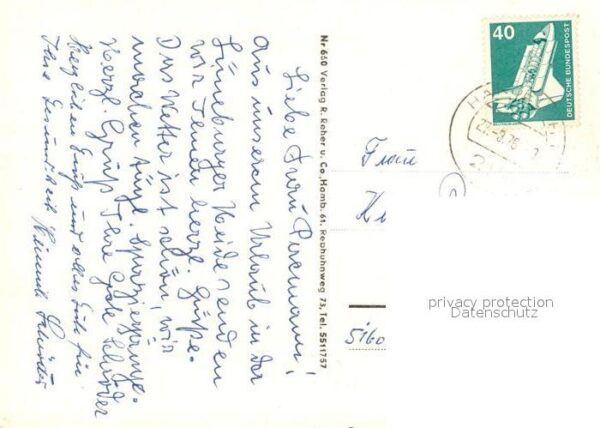 Liebe Frau Purmann!
Aus unserem Urlaub in der
Lüneburger Heide senden
wir Ihnen herzl. Grüße.
Das Wetter ist schön, wir
machen Spaziergänge.
Herzl. Grüße Ihre Schröder
Herzlichen Gruß und alles Gute für
Ihre Gesundheit Schröder
Nr 656 Verlag R. Reher u. Co. Hamb. 61. Rebhuhnweg 73, Tel. 5511757
40
DEUTSCHE BUNDESPOST
Frau
5160
privacy protection
Datenschutz